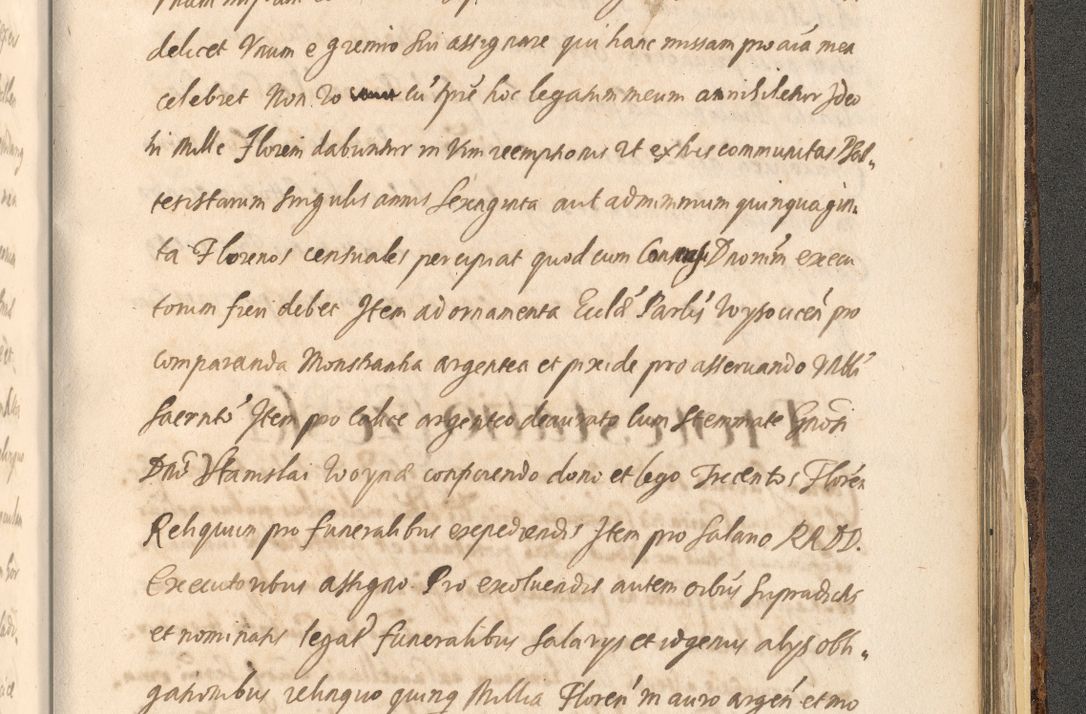 delicet Vnum e gremio sui assignare qui hanc missam pro aīa mea
celebret Non Vo cū tp̄re hoc legatum meum annihiletur Ideo
hi Mille Floreni dabuntur in Vim reemptionis Vt ex his communitas Psal„
teristarum singulis annis sexaginta aut ad minimum quinquagin„
ta Florenos censuales percipiat quod cum Consensu Dnorum execu
torum fieri debet Item ad ornamenta Eccl̄ae Parlis Wysocicen̄ pro
comparanda Monstrantia argentea et pixide pro asseruando Vbbli
Sacrnto Item pro Calice argenteo deaurato cum Stemmate Gnosi
Dni Stanislai Woynae conficiendo dono et lego Trecentos Floren
Reliquum pro funeralibus expediendis Item pro Salario RR DD.
Executoribus assigno. Pro exoluendis autem oībus supradictis
et nominatis legat funeralibus salarys et idgenus alys obli„
gationibus relinquo quinq Millia Floren in auro argen et mo